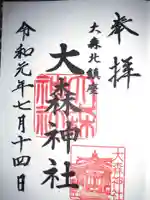 奉拝
大森北鎮座
大森神社
令和元年七月十四日